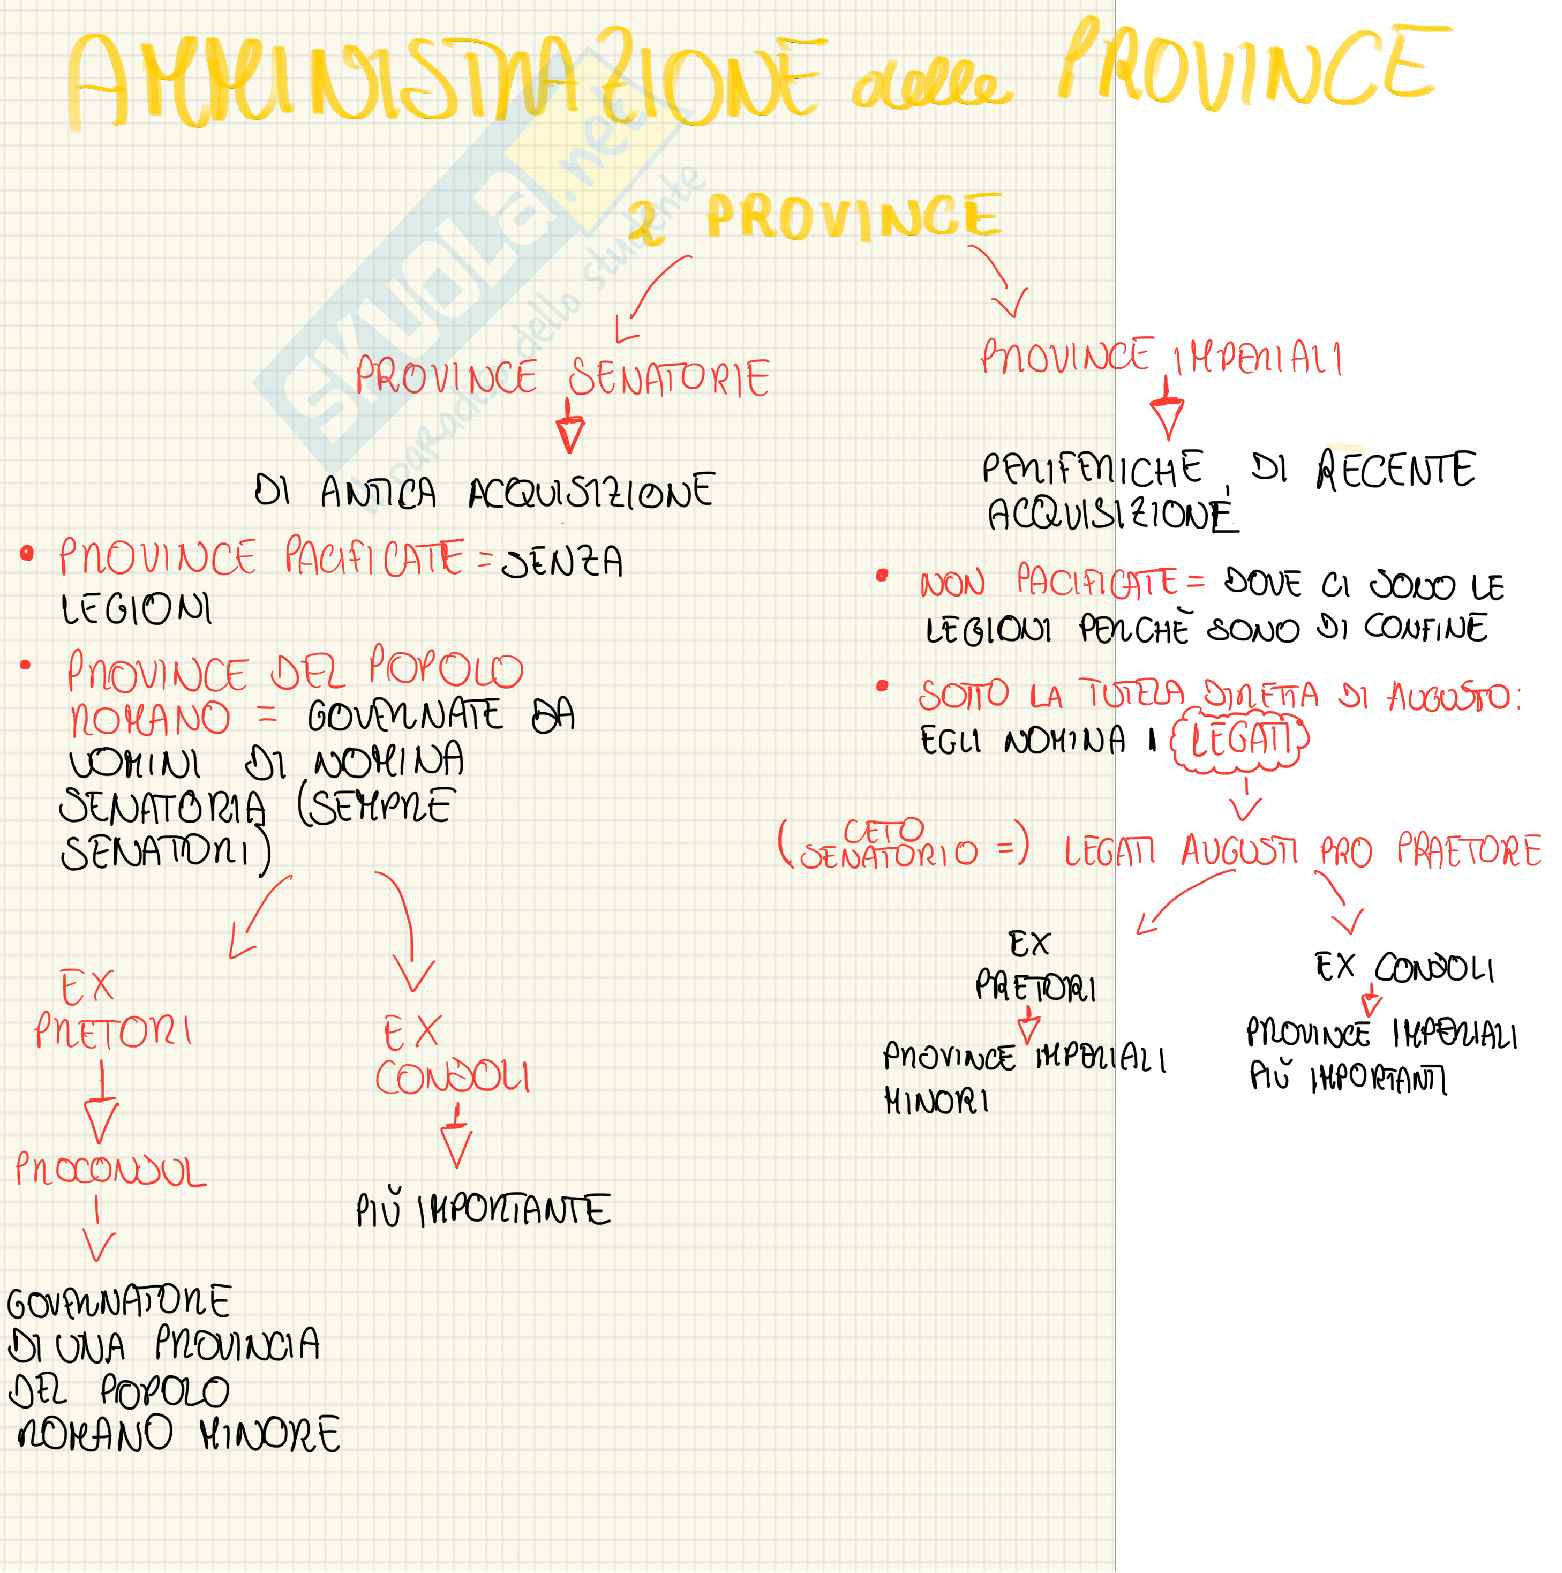 AMMINISTRAZIONE delle PROVINCE
2 PROVINCE
PROVINCE SENATORIE
DI ANTICA ACQUISIZIONE
• PROVINCE PACIFICATE = SENZA
LEGIONI
• PROVINCE DEL POPOLO
ROMANO = GOVERNATE DA
UOMINI DI NOMINA
SENATORIA (SEMPRE
SENATORI)
EX
PRETORI
PROCONSUL
GOVERNATORE
DI UNA PROVINCIA
DEL POPOLO
ROMANO MINORE
EX
CONSOLI
PIÙ IMPORTANTE
PROVINCE IMPERIALI
PERIFERICHE, DI RECENTE
ACQUISIZIONE
• NON PACIFICATE = DOVE CI SONO LE
LEGIONI PERCHÈ SONO DI CONFINE
• SOTTO LA TUTELA DIRETTA DI AUGUSTO:
EGLI NOMINA I LEGATI
(CETO
SENATORIO =) LEGATI AUGUSTI PRO PRAETORE
EX
PRETORI
PROVINCE IMPERIALI
MINORI
EX CONSOLI
PROVINCE IMPERIALI
PIÙ IMPORTANTI
SKUOLA.net
dello studente